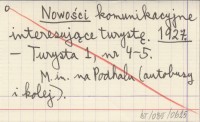 Nowości komunikacyjne
interesujące turystę. 1927.
— Turysta 1, nr. 4-5.
M. in. na Podhalu (autobusy
i kolej).